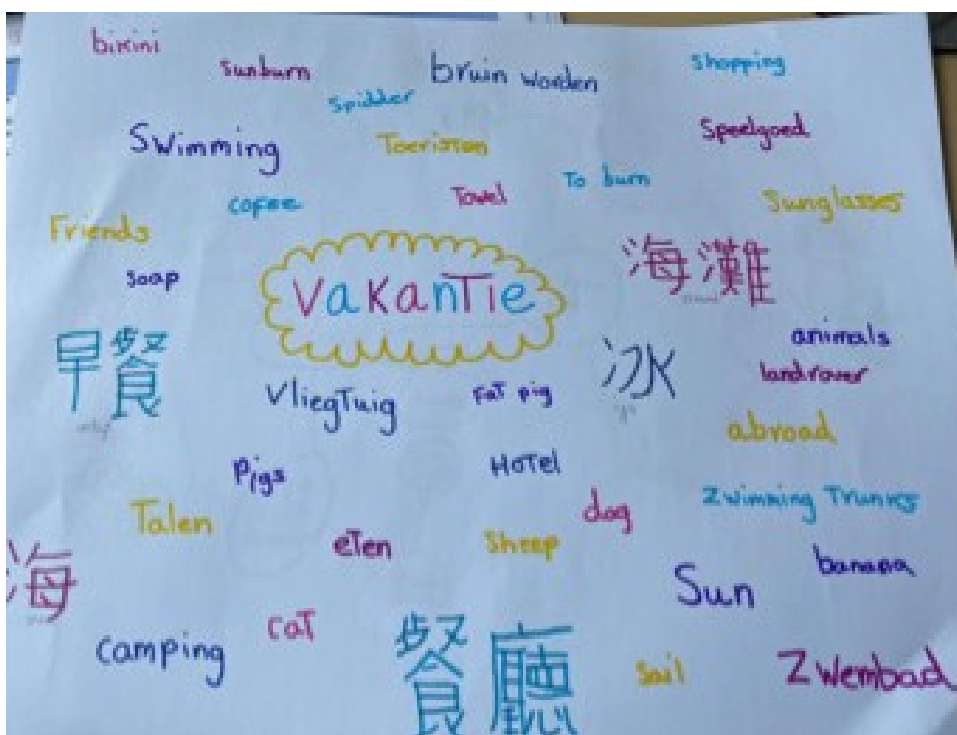 bikini
sunburn
bruin worden
shopping
spidder
Swimming
Toeristen
Speelgoed
cofee
Towel
To burn
Sunglasses
Friends
soap
VakanTie
海灘
早餐
冰
animals
landrover
VliegTuig
FaT pig
abroad
Pigs
HoTel
Talen
dog
Zwimming Trunks
eTen
Sheep
海
Sun
banana
camping
caT
餐廳
Sail
Zwembad